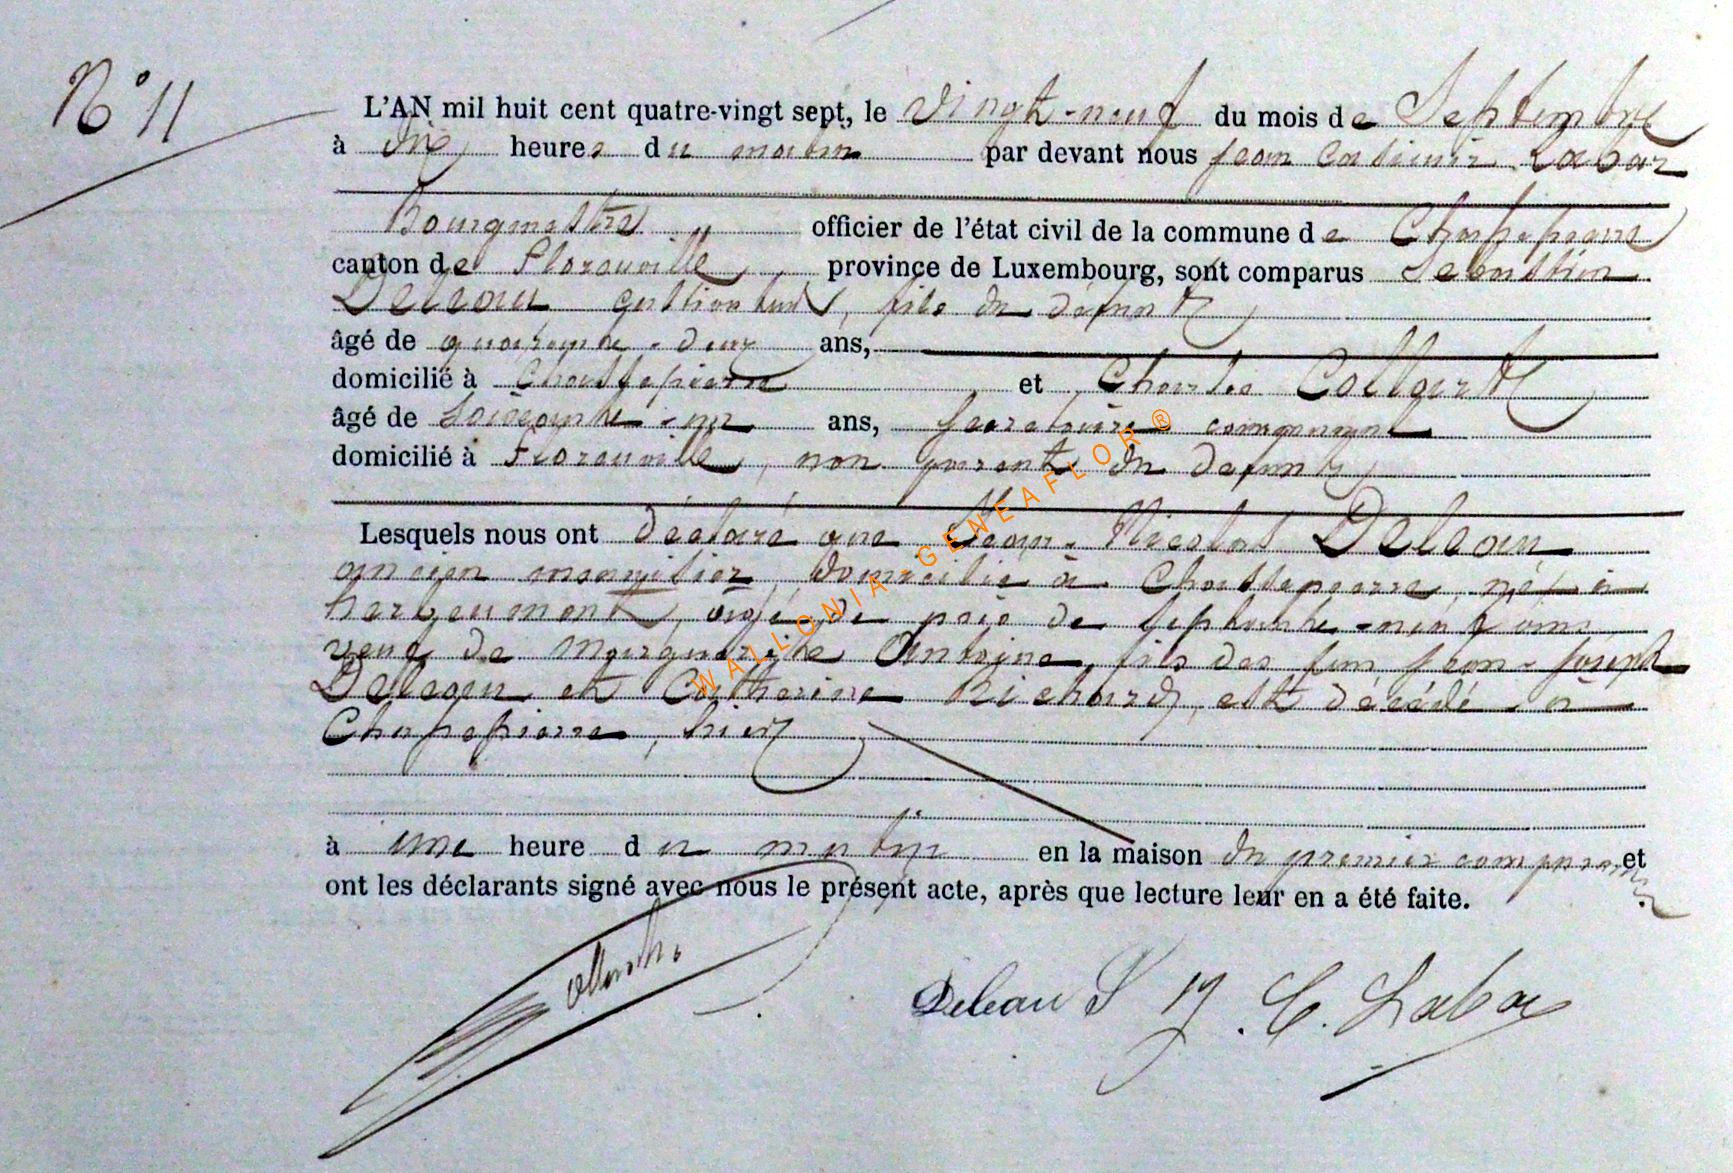 N° 11
L'AN mil huit cent quatre-vingt sept, le vingt-neuf du mois de Septembre
à dix heures du matin par devant nous Jean Casimir Labar
Bourgmestre officier de l'état civil de la commune de Chassepierre
canton de Florenville province de Luxembourg, sont comparus Sébastien
Deleau cultivateur, fils du défunt
âgé de quarante-deux ans,
domicilié à Chassepierre et Charles Collart
âgé de soixante-un ans, secrétaire communal
domicilié à Florenville, non parent du defunt,
Lesquels nous ont déclaré que Jean-Nicolas Deleau
ancien menuisier, domicilié à Chassepierre, né à
herbeumont, âgé de près de septante-neuf ans
veuf de Marguerite Antoine, fils des feus Jean-Joseph
Deleau et Catherine Richard, est décédé à
Chassepierre, hier
à une heure du matin en la maison du premier comparant et
ont les déclarants signé avec nous le présent acte, après que lecture leur en a été faite.
Collart Deleau S J. C. Labar
WALLONIA-GENEAFLOR®